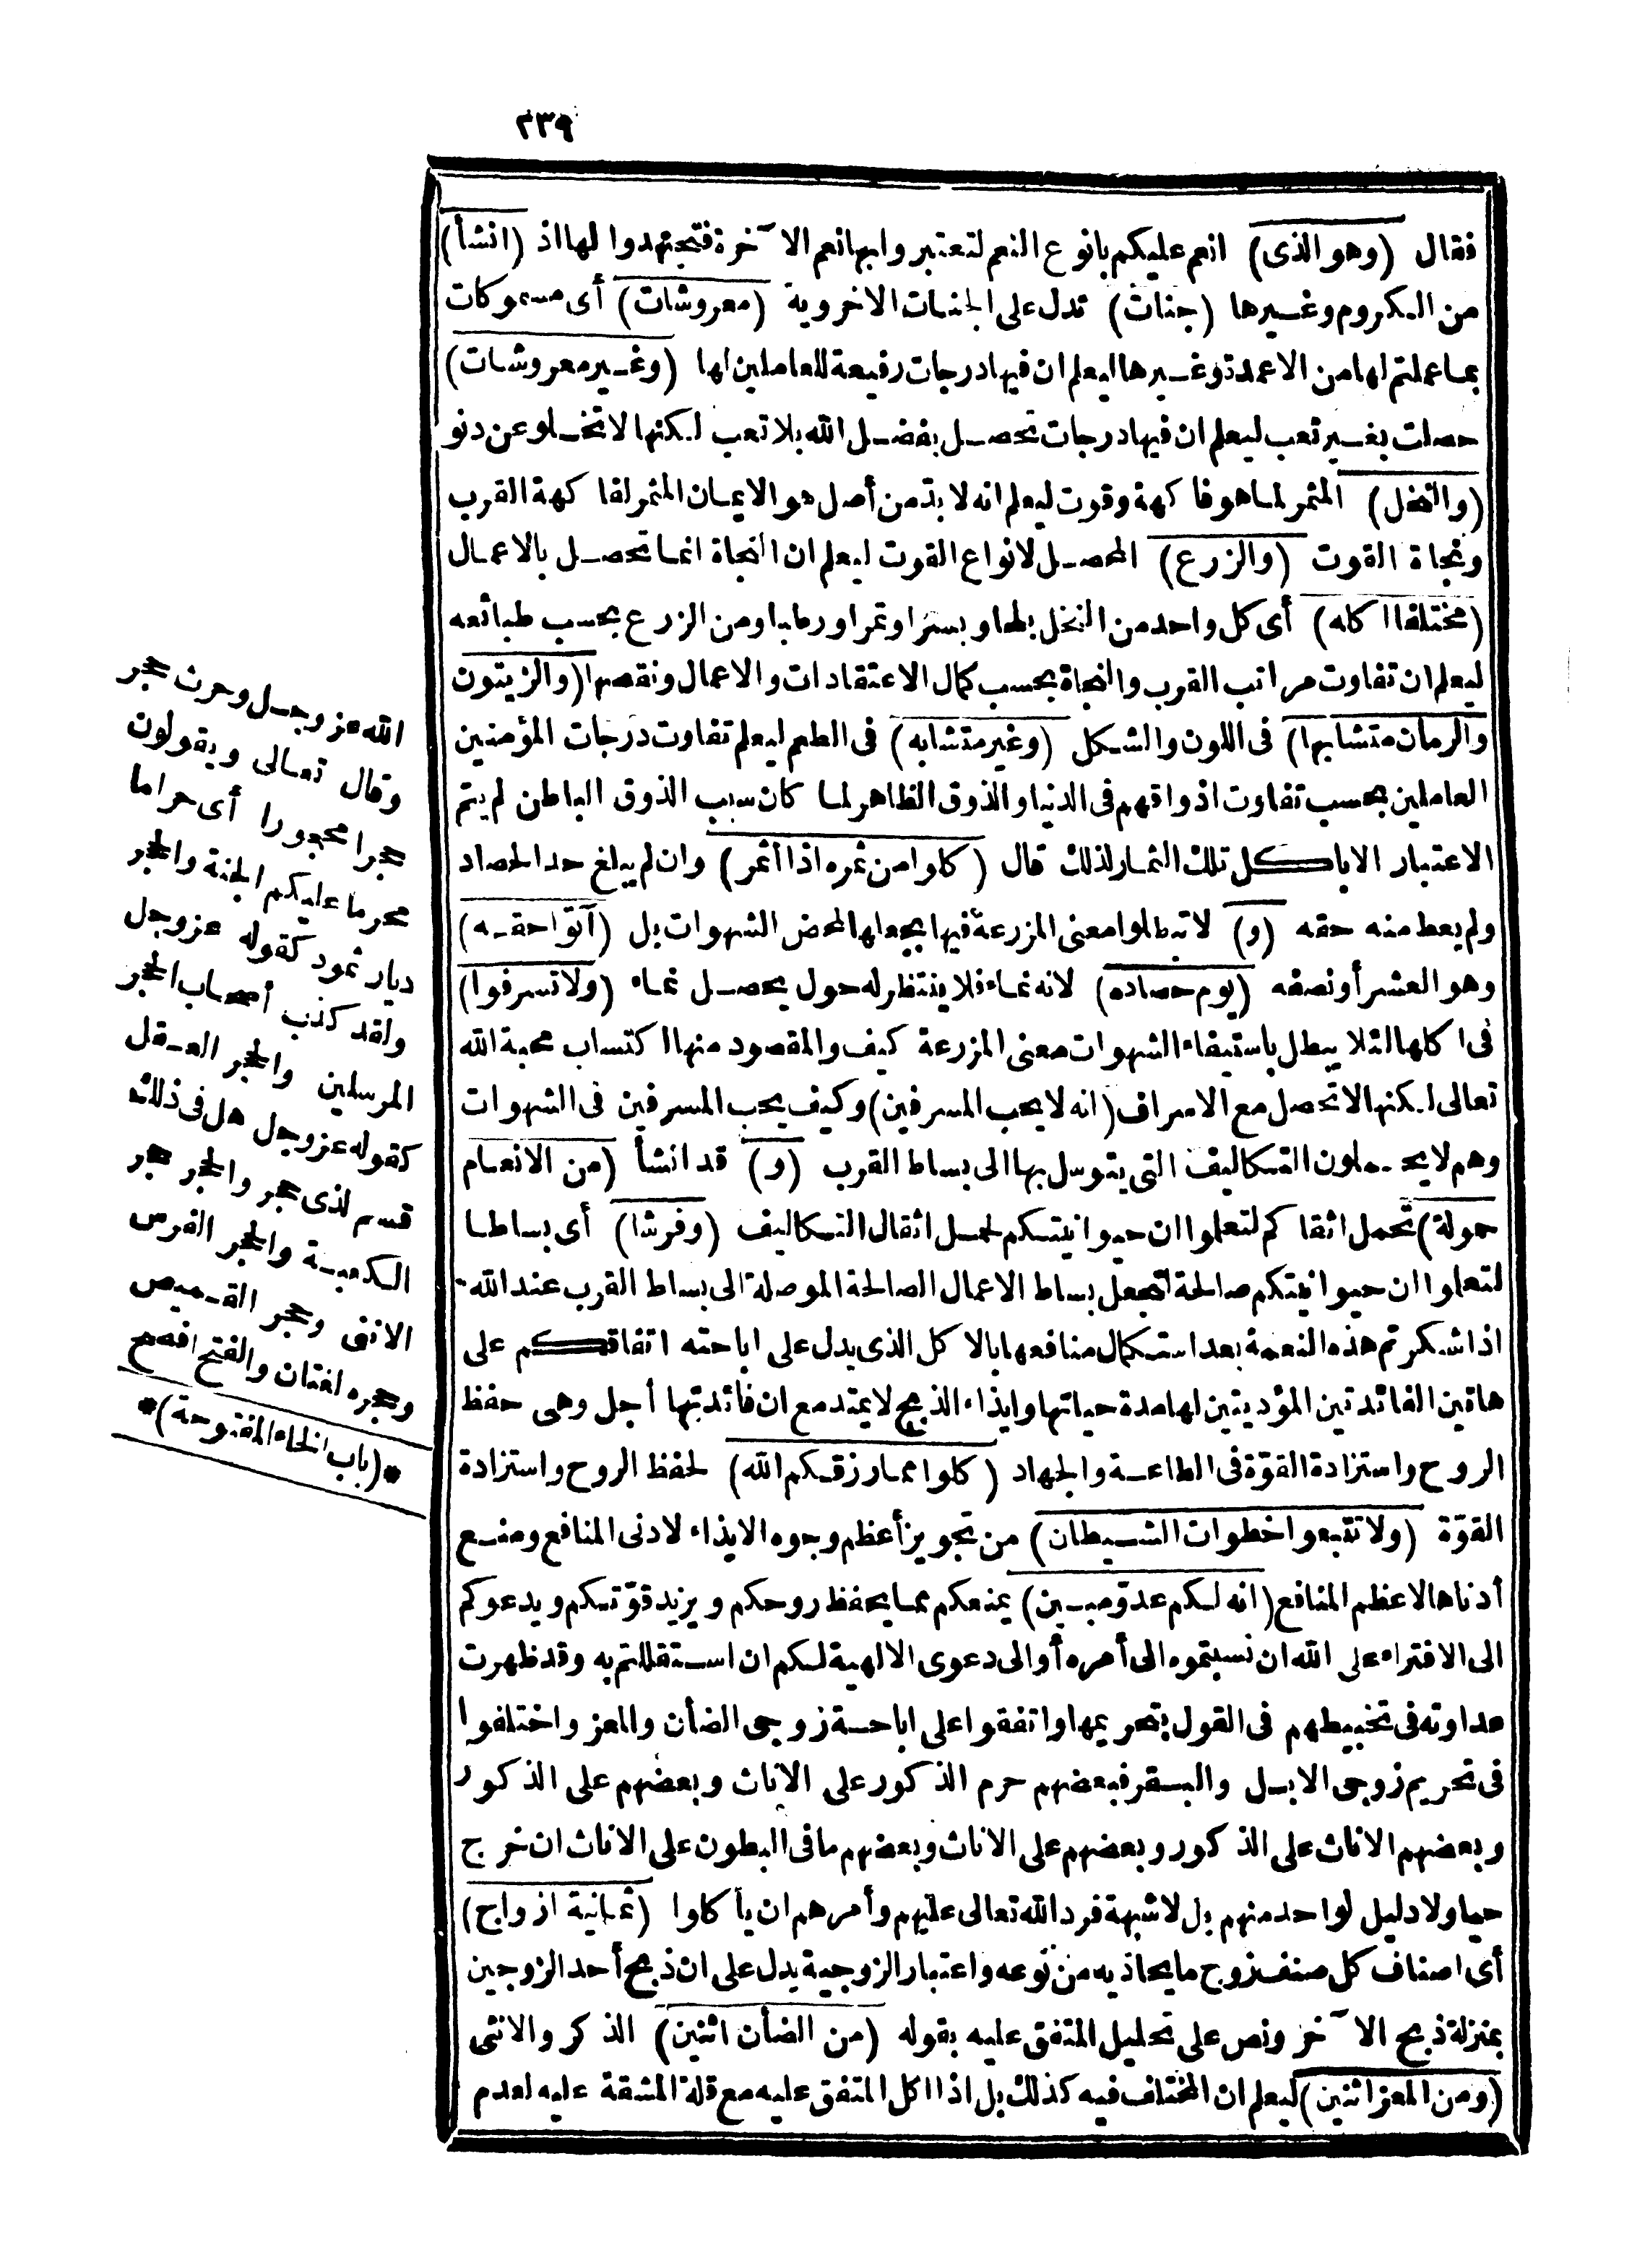 ٢٣٩
فقال (وهو الذى) انعم عليكم بانواع النعم لتعتبروا بها نعم الآخرة فتجتهدوا لها اذ (انشأ)
من الكروم وغيرها (جنات) تدل على الجنات الاخروية (معروشات) أى مسموكات
بما عملتم لها من الاعمدة وغيرها ليعلم ان فيها درجات رفيعة للعاملين لها (وغير معروشات)
حصلت بغير تعب ليعلم ان فيها درجات تحصل بفضل الله بلا تعب لكنها لا تخلو عن دنو
(والنخل) المثمر لما هو فاكهة وقوت ليعلم انه لا بد من أصل هو الايمان المثمر لفاكهة القرب
ونجاة القوت (والزرع) المحصل لانواع القوت ليعلم ان النجاة انما تحصل بالاعمال
(مختلفا اكله) أى كل واحد من النخل بلحا وبسرا وتمرا ورطبا ومن الزرع بحسب طبائعه
ليعلم ان تفاوت مراتب القرب والنجاة بحسب كمال الاعتقادات والاعمال ونقصها (والزيتون
والرمان متشابها) فى اللون والشكل (وغير متشابه) فى الطعم ليعلم تفاوت درجات المؤمنين
العاملين بحسب تفاوت اذواقهم فى الدنيا والذوق الظاهر لما كان سبب الذوق الباطن لم يتم
الاعتبار الا باكل تلك الثمار لذلك قال (كلوا من ثمره اذا أثمر) وان لم يبلغ حد الحصاد
ولم يعط منه حقه (و) لا تبطلوا معنى المزرعة فيها بجعلها لمحض الشهوات بل (آتوا حقه)
وهو العشر أو نصفه (يوم حصاده) لانه نماء فلا ينتظر له حول يحصل نماء (ولا تسرفوا)
فى اكلها لئلا يبطل باستيفاء الشهوات معنى المزرعة كيف والمقصود منها اكتساب محبة الله
تعالى لكنها لا تحصل مع الاسراف (انه لا يحب المسرفين) وكيف يحب المسرفين فى الشهوات
وهم لا يحملون التكاليف التى يتوسل بها الى بساط القرب (و) قد انشأ (من الانعام
حمولة) تحمل اثقالكم لتعلموا ان حيوانيتكم لحمل اثقال التكاليف (وفرشا) أى بساطا
لتعلموا ان حيوانيتكم صالحة لتجعل بساط الاعمال الصالحة الموصلة الى بساط القرب عند الله
اذا شكرتم هذه النعمة بعد استكمال منافعها بالاكل الذى يدل على اباحته اتفاقكم على
هاتين الفائدتين المؤديتين لها مدة حياتها وايذاء الذبح لا يمتد مع ان فائدتها أجل وهى حفظ
الروح واستزادة القوّة فى الطاعة والجهاد (كلوا مما رزقكم الله) لحفظ الروح واستزادة
القوّة (ولا تتبعوا خطوات الشيطان) من تجويز أعظم وجوه الايذاء لادنى المنافع ومنع
أدناها لاعظم المنافع (انه لكم عدوّ مبين) يمنعكم مما يحفظ روحكم ويزيد قوّتكم ويدعوكم
الى الافتراء على الله ان نسبتموه الى أمره أو الى دعوى الالهية لكم ان استقللتم به وقد ظهرت
عداوته فى تخبيطهم فى القول بتحريمها واتفقوا على اباحة زوجى الضأن والمعز واختلفوا
فى تحريم زوجى الابل والبقر فبعضهم حرم الذكور على الاناث وبعضهم على الذكور
وبعضهم الاناث على الذكور وبعضهم على الاناث وبعضهم ما فى البطون على الاناث ان خرج
حيا ولا دليل لواحد منهم بل لا شبهة فرد الله تعالى عليهم وأمرهم ان يأكلوا (ثمانية ازواج)
أى اصناف كل صنف زوج ما يحاذيه من نوعه واعتبار الزوجية يدل على ان ذبح أحد الزوجين
بمنزلة ذبح الآخر ونص على تحليل المتفق عليه بقوله (من الضأن اثنين) الذكر والانثى
(ومن المعز اثنين) ليعلم ان المختلف فيه كذلك بل اذا اكل المتفق عليه مع قلة المشقة عليه لعدم
الله عز وجل وحرث حجر
وقال تعالى ويقولون
حجرا محجورا أى حراما
محرما عليكم الجنة والحجر
ديار ثمود كقوله عز وجل
ولقد كذب أصحاب الحجر
المرسلين والحجر العقل
كقوله عز وجل هل فى ذلك
قسم لذى حجر والحجر حجر
الكعبة والحجر الفرس
الانثى وحجر القميص
وحجره لغتان والفتح افصح
*(باب الخاء المفتوحة)*